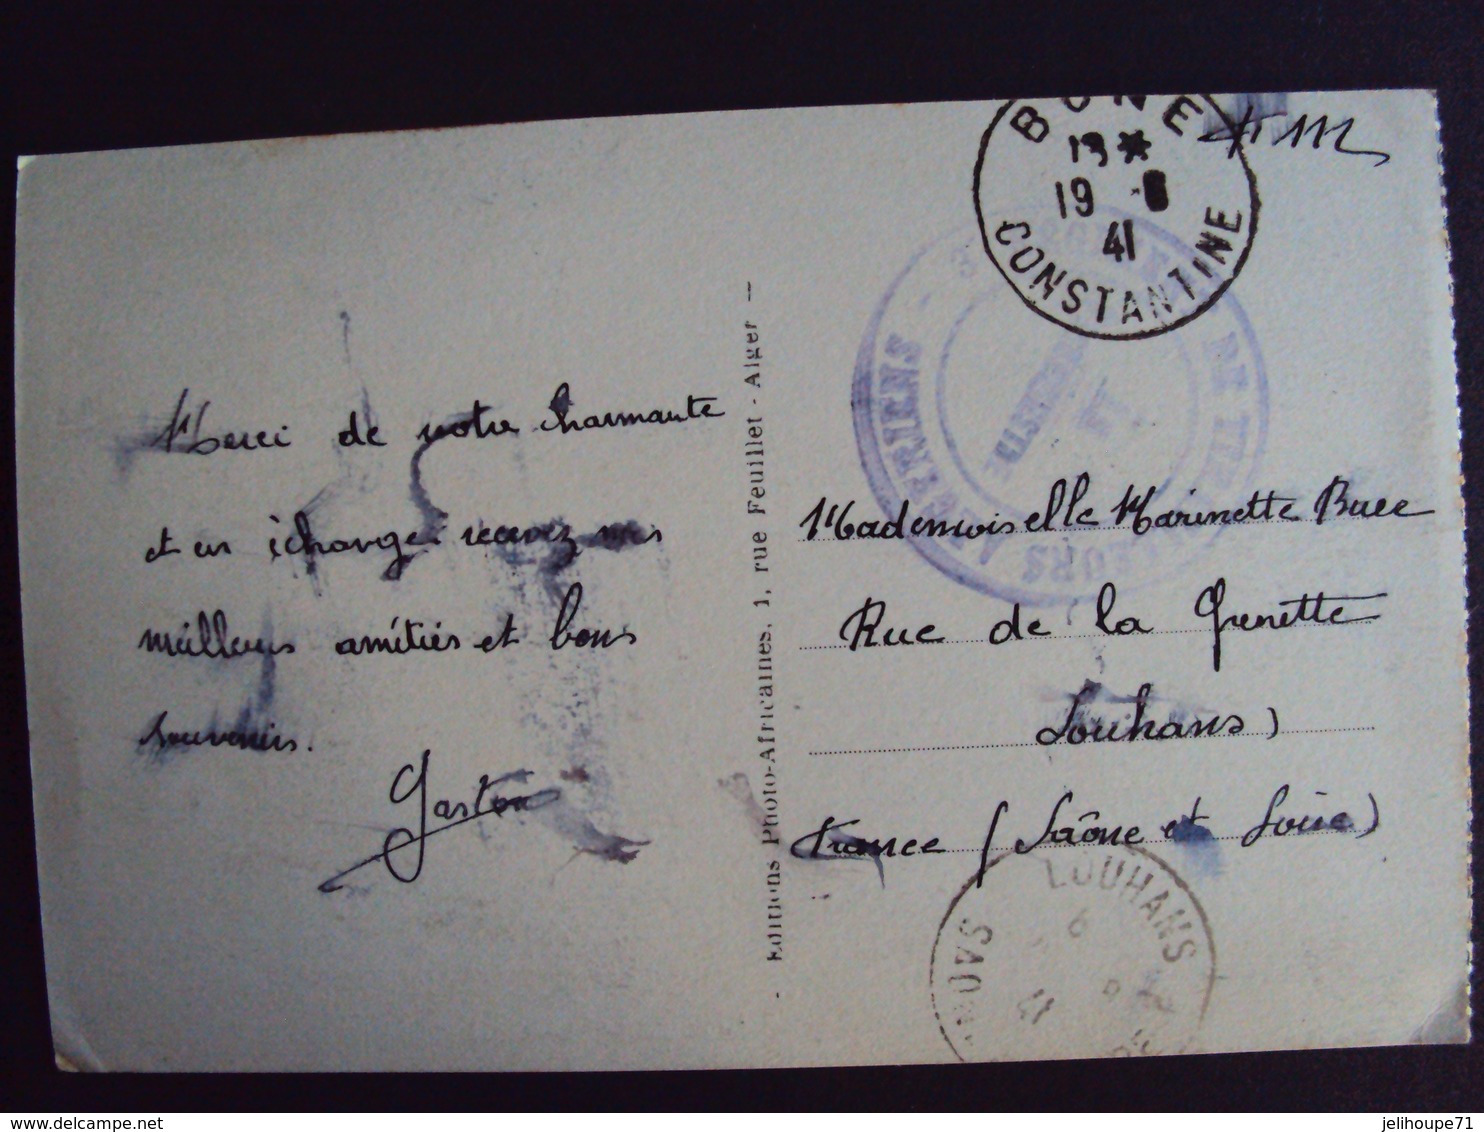 BONE
19
41
CONSTANTINE
FM
Merci de votre charmante
et en échange recevez mes
meilleurs amitiés et bons
souvenirs.
Gaston
- Editions Photo-Africaines, 1, rue Feuillet - Alger -
DE
ALGERIENS
Mademoiselle Marinette
Rue de la Grenette
Louhans)
France (Saône et Loire)
LOUHANS
SAONE
41
www.delcampe.net
jelihoupe71